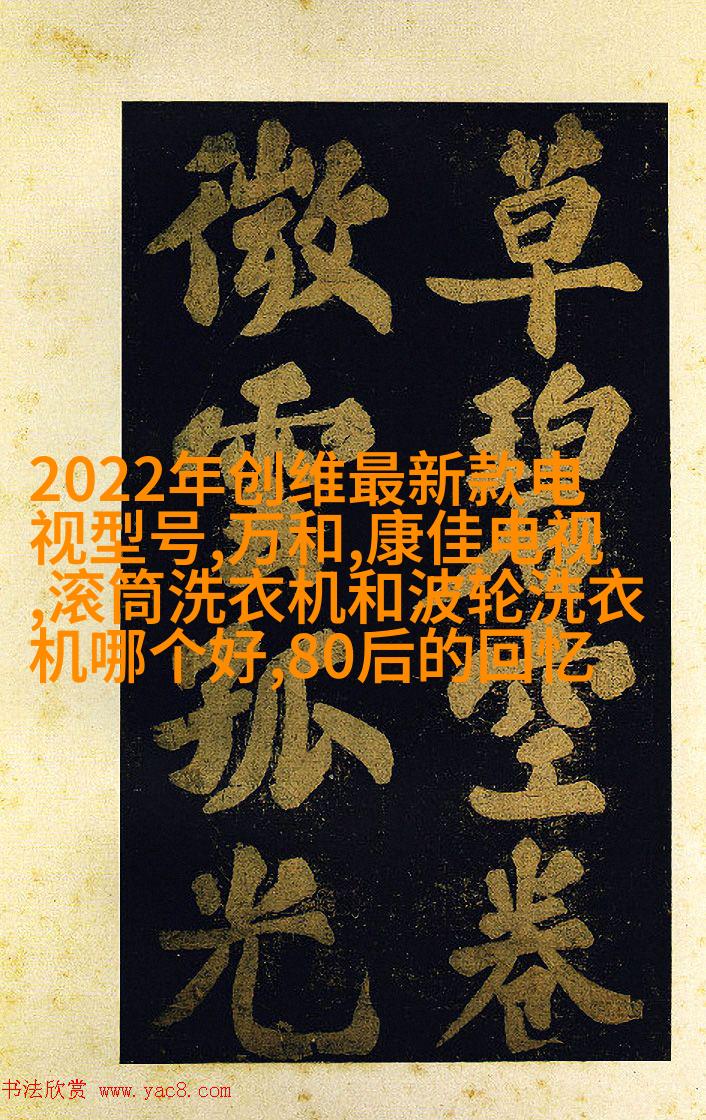 草碧空卷
徵雪孤光
2022年创维最新款电
视型号,万和,康佳电视
,滚筒洗衣机和波轮洗衣
机哪个好,80后的回忆
书法欣赏 www.yac8.com